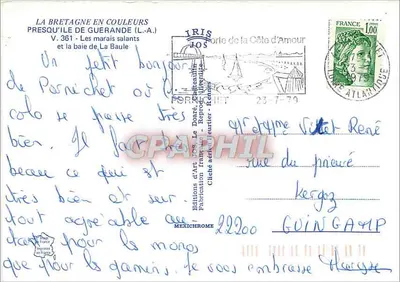 LA BRETAGNE EN COULEURS
PRESQU'ILE DE GUERANDE (L.-A.)
V. 361 - Les marais salants
et la baie de La Baule
IRIS
JOS
Porte de la Côte d'Amour
23-7-79
FRANCE
1,00
LOIRE ATLANTIQUE
Un petit bonjour
de Pornichet où la
colo se passe très
bien. Il fait très
beau ce qui est
très bien et sur-
tout agréable au-
tant pour les monos
que pour les gamins. Je vous embrasse
Mr et Mme Violet René
rue du prieuré
22200 GUINGAMP
Editions d'Art Jos Le Doaré, Chateaulin
Fabrication française - Reproduction interdite
MEXICHROME
CPAPHIL